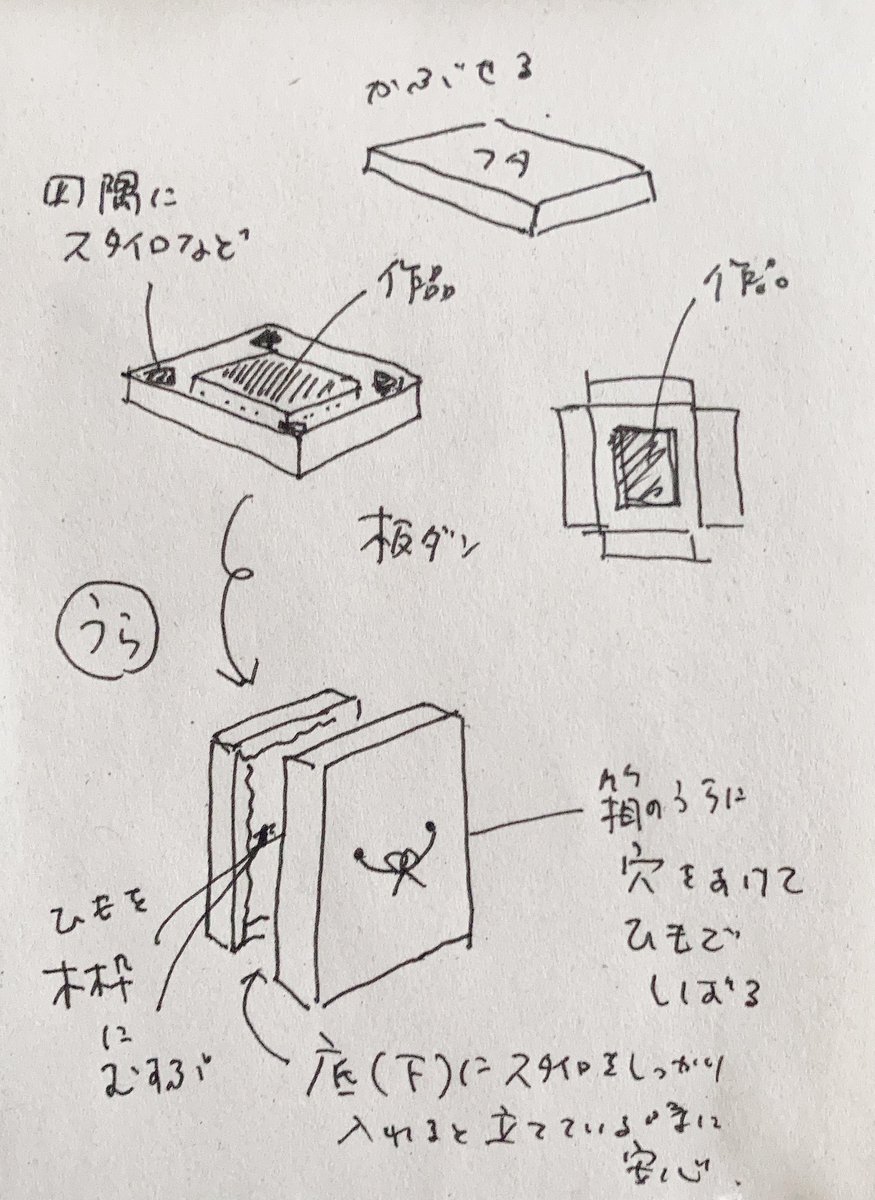 かぶせる
フタ
四隅に
スタイロなど
作品
作品
板ダン
うら
箱のうらに
穴をあけて
ひもで
しばる
ひもを
木枠
に
むすぶ
底(下)にスタイロをしっかり
入れると立てている時に
安心.